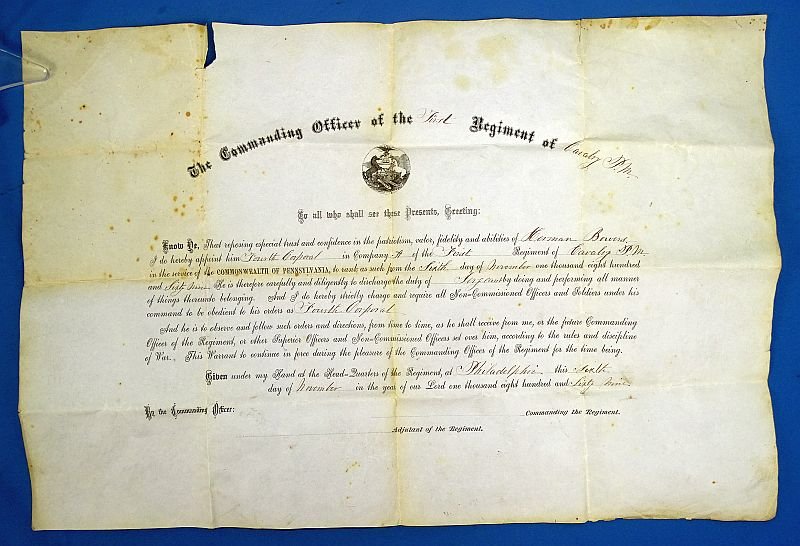 The Commanding Officer of the First Regiment of Cavalry P.M.
To all who shall see these Presents, Greeting:
Know Ye, That reposing especial trust and confidence in the patriotism, valor, fidelity and abilities of Herman Bowers
I do hereby appoint him Fourth Corporal in Company A of the First Regiment of Cavalry P.M.
in the service of the COMMONWEALTH OF PENNSYLVANIA, to rank as such from the Sixth day of November one thousand eight hundred
and Sixty Nine. He is therefore carefully and diligently to discharge the duty of Corporal by doing and performing all manner
of things thereunto belonging. And I do hereby strictly charge and require all Non-Commissioned Officers and Soldiers under his
command to be obedient to his orders as Fourth Corporal
And he is to observe and follow such orders and directions, from time to time, as he shall receive from me, or the future Commanding
Officer of the Regiment, or other Superior Officers and Non-Commissioned Officers set over him, according to the rules and discipline
of War. This Warrant to continue in force during the pleasure of the Commanding Officer of the Regiment for the time being.
Given under my Hand at the Head-Quarters of the Regiment, at Philadelphia this Sixth
day of November in the year of our Lord one thousand eight hundred and Sixty Nine
By the Commanding Officer: Commanding the Regiment.
Adjutant of the Regiment.